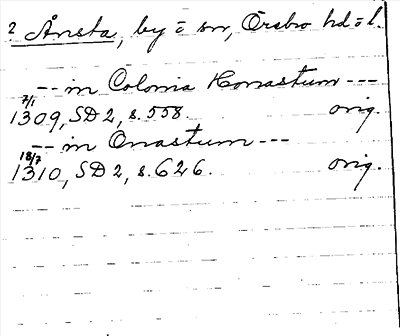 ? Ånsta, by ō sn, Örebro hd ō l.
-- in Colonia Honastum ---
7/1
1309, SD 2, s. 558. orig.
-- in Onastum ---
18/7
1310, SD 2, s. 626. orig.